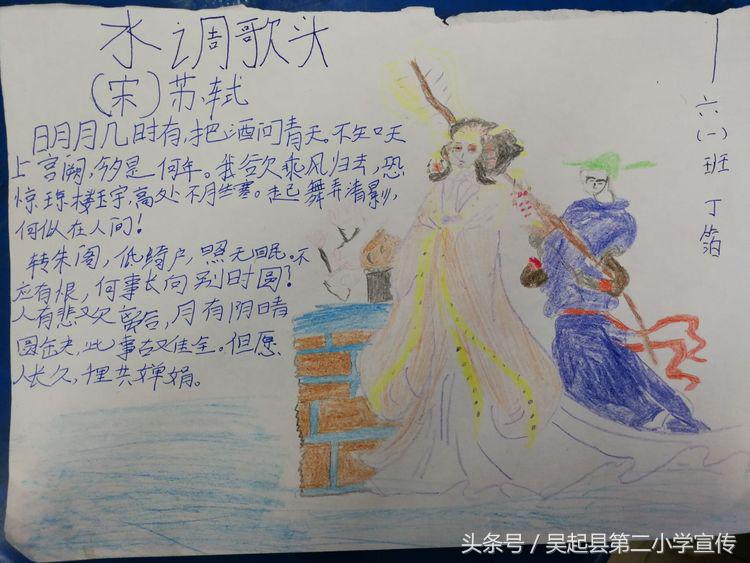 水调歌头
(宋)苏轼
明月几时有,把酒问青天。不知天
上宫阙,今夕是何年。我欲乘风归去,恐
惊琼楼玉宇,高处不胜寒。起舞弄清影,
何似在人间!
转朱阁,低绮户,照无眠。不
应有恨,何事长向别时圆?
人有悲欢离合,月有阴晴
圆缺,此事古难全。但愿
人长久,里共婵娟。
六(一)班 丁箔
头条号/吴起县第二小学宣传